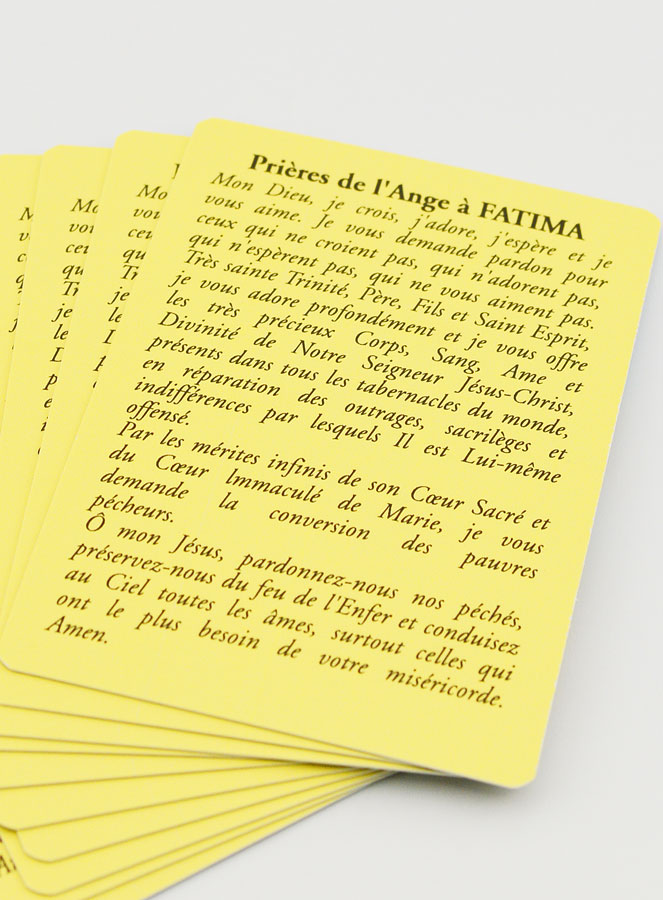 Prières de l'Ange à FATIMA
Mon Dieu, je crois, j'adore, j'espère et je
vous aime. Je vous demande pardon pour
ceux qui ne croient pas, qui n'adorent pas,
qui n'espèrent pas, qui ne vous aiment pas.
Très sainte Trinité, Père, Fils et Saint Esprit,
je vous adore profondément et je vous offre
les très précieux Corps, Sang, Ame et
Divinité de Notre Seigneur Jésus-Christ,
présents dans tous les tabernacles du monde,
en réparation des outrages, sacrilèges et
indifférences par lesquels Il est Lui-même
offensé.
Par les mérites infinis de son Cœur Sacré et
du Cœur Immaculé de Marie, je vous
demande la conversion des pauvres
pécheurs.
Ô mon Jésus, pardonnez-nous nos péchés,
préservez-nous du feu de l'Enfer et conduisez
au Ciel toutes les âmes, surtout celles qui
ont le plus besoin de votre miséricorde.
Amen.